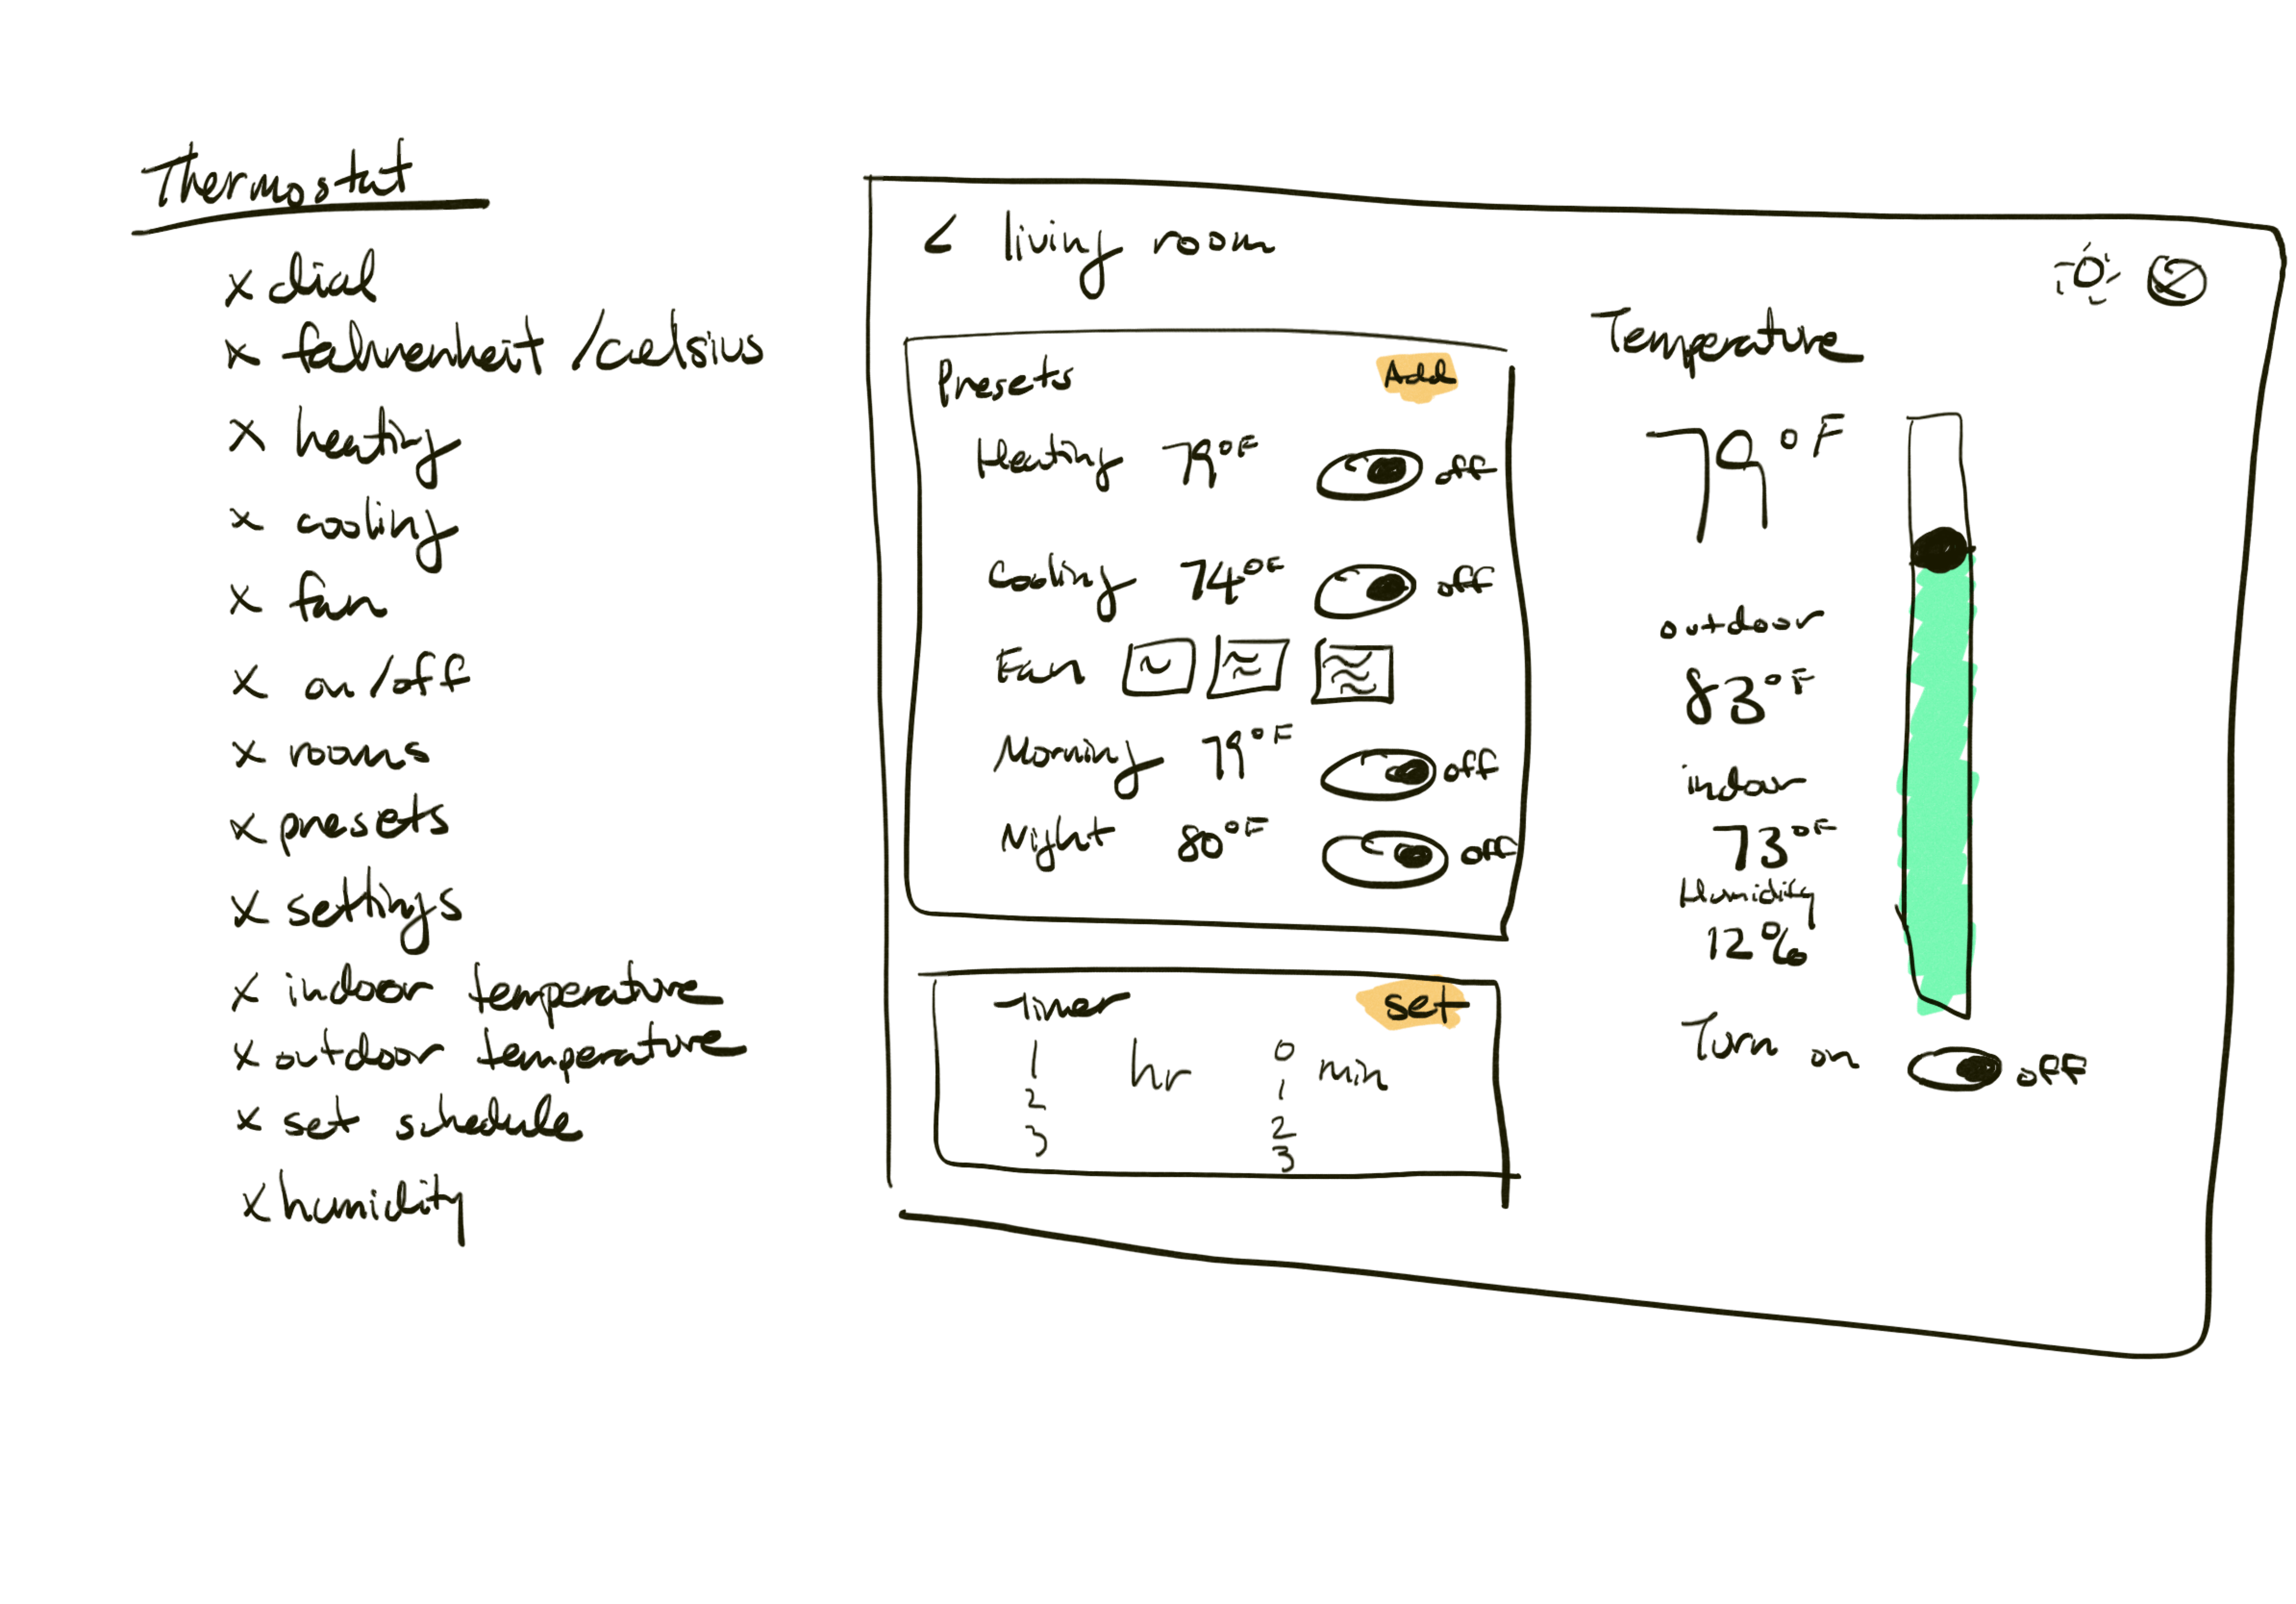 Thermostat
x dial
x fahrenheit / celsius
x heating
x cooling
x fan
x on/off
x rooms
x presets
x settings
x indoor temperature
x outdoor temperature
x set schedule
x humidity
< living room
Presets Add
Heating 79°F off
Cooling 74°F off
Fan
Morning 79°F off
Night 80°F off
Timer set
1 hr 0 min
2 1
3 2
3
Temperature
79°F
outdoor
83°F
indoor
73°F
Humidity
12%
Turn on off